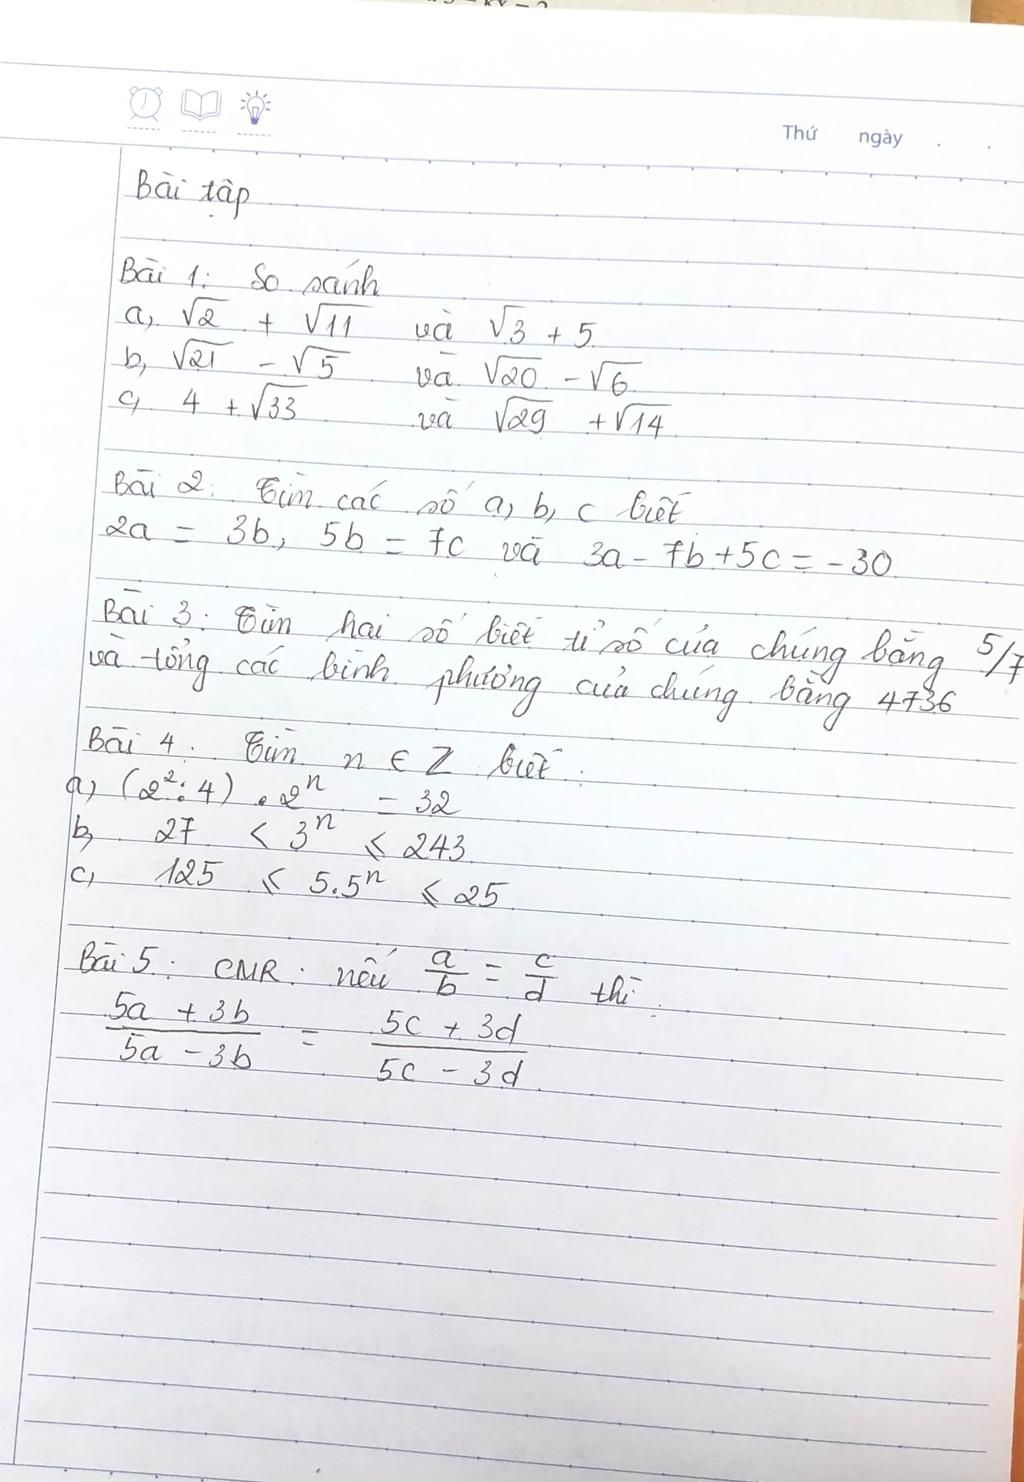 Thứ ngày . .
Bài tập
Bài 1: So sánh
a, √2 + √11 và √3 + 5
b, √21 - √5 và √20 - √6
c, 4 + √33 và √29 + √14
Bài 2: Tìm các số a, b, c biết
2a = 3b, 5b = 7c và 3a - 7b + 5c = -30
Bài 3: Tìm hai số biết tỉ số của chúng bằng 5/7
và tổng các bình phương của chúng bằng 4736
Bài 4. Tìm n ∈ Z biết:
a, (2²:4) . 2ⁿ = 32
b, 27 < 3ⁿ ≤ 243
c, 125 ≤ 5.5ⁿ ≤ 25
Bài 5: CMR: nếu a/b = c/d thì
(5a + 3b)/(5a - 3b) = (5c + 3d)/(5c - 3d)